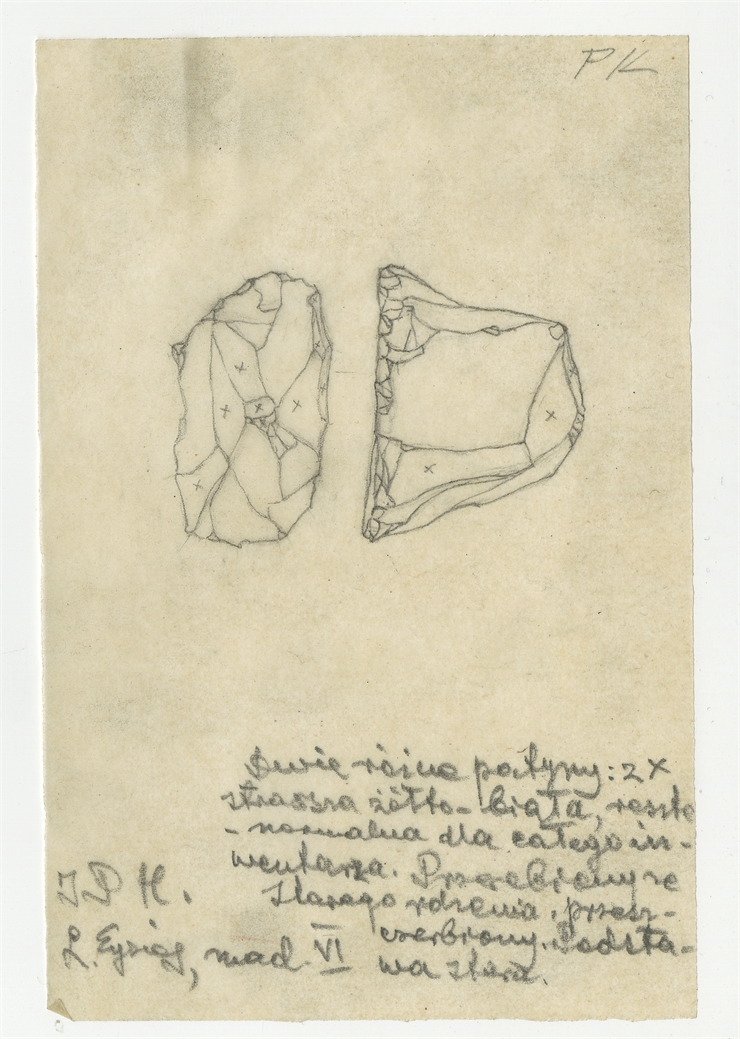 PK
Dwie różne patyny: z x
starsza żółto-biała, reszta
- normalna dla całego in-
wentarza. Przerobiony ze
starego rdzenia, przesz-
czerbiony. Podsta-
wa stara.
I P H.
Ł. mad. VI